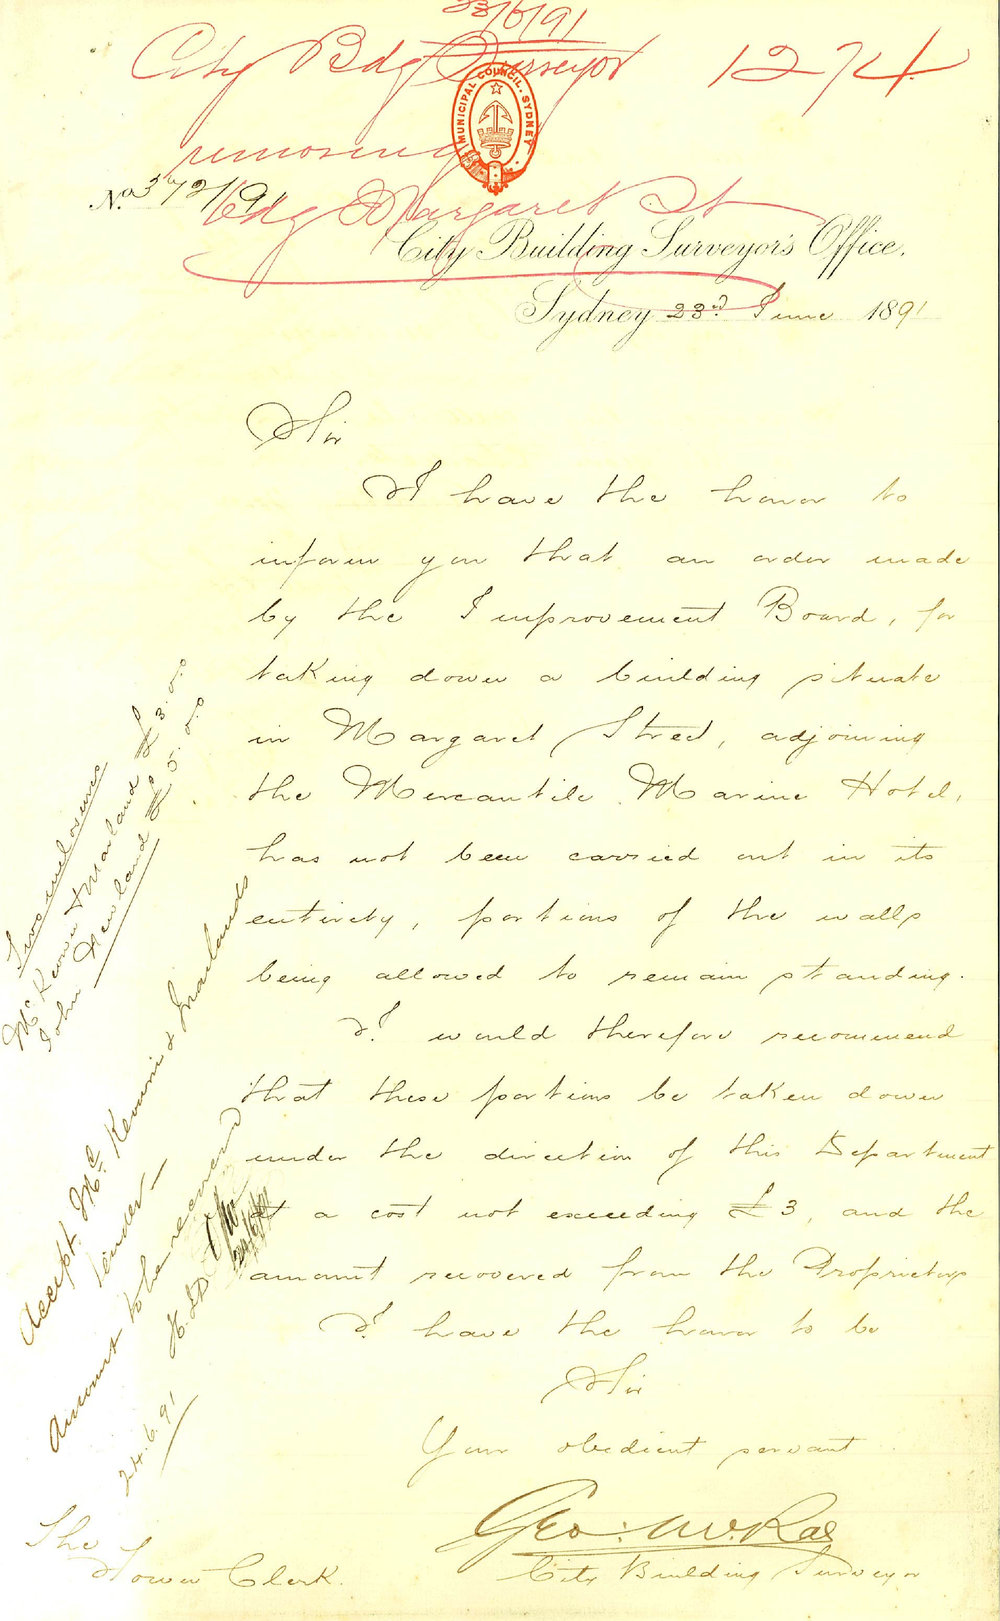 23/6/91
City Bdg Surveyor 1274
removing
Bdg Margaret St
MUNICIPAL COUNCIL. SYDNEY
No. 372/91
City Building Surveyor's Office.
Sydney 23rd June 1891
Sir
I have the honor to
inform you that an order made
by the Improvement Board, for
taking down a building situate
in Margaret Street, adjoining
the Mercantile Marine Hotel,
has not been carried out in its
entirety, portions of the walls
being allowed to remain standing.
I would therefore recommend
that these portions be taken down
under the direction of this Department
at a cost not exceeding £3, and the
amount recovered from the Proprietors
I have the honor to be
Sir
Your obedient servant
Geo: McRae
City Building Surveyor
The
Town Clerk.
Two enclosures
McKeown & Marland £3.0.0
John Newland £5.0.0
Accept Mc Keown & Marlands
tender—
Amount to be recovered
24.6.91